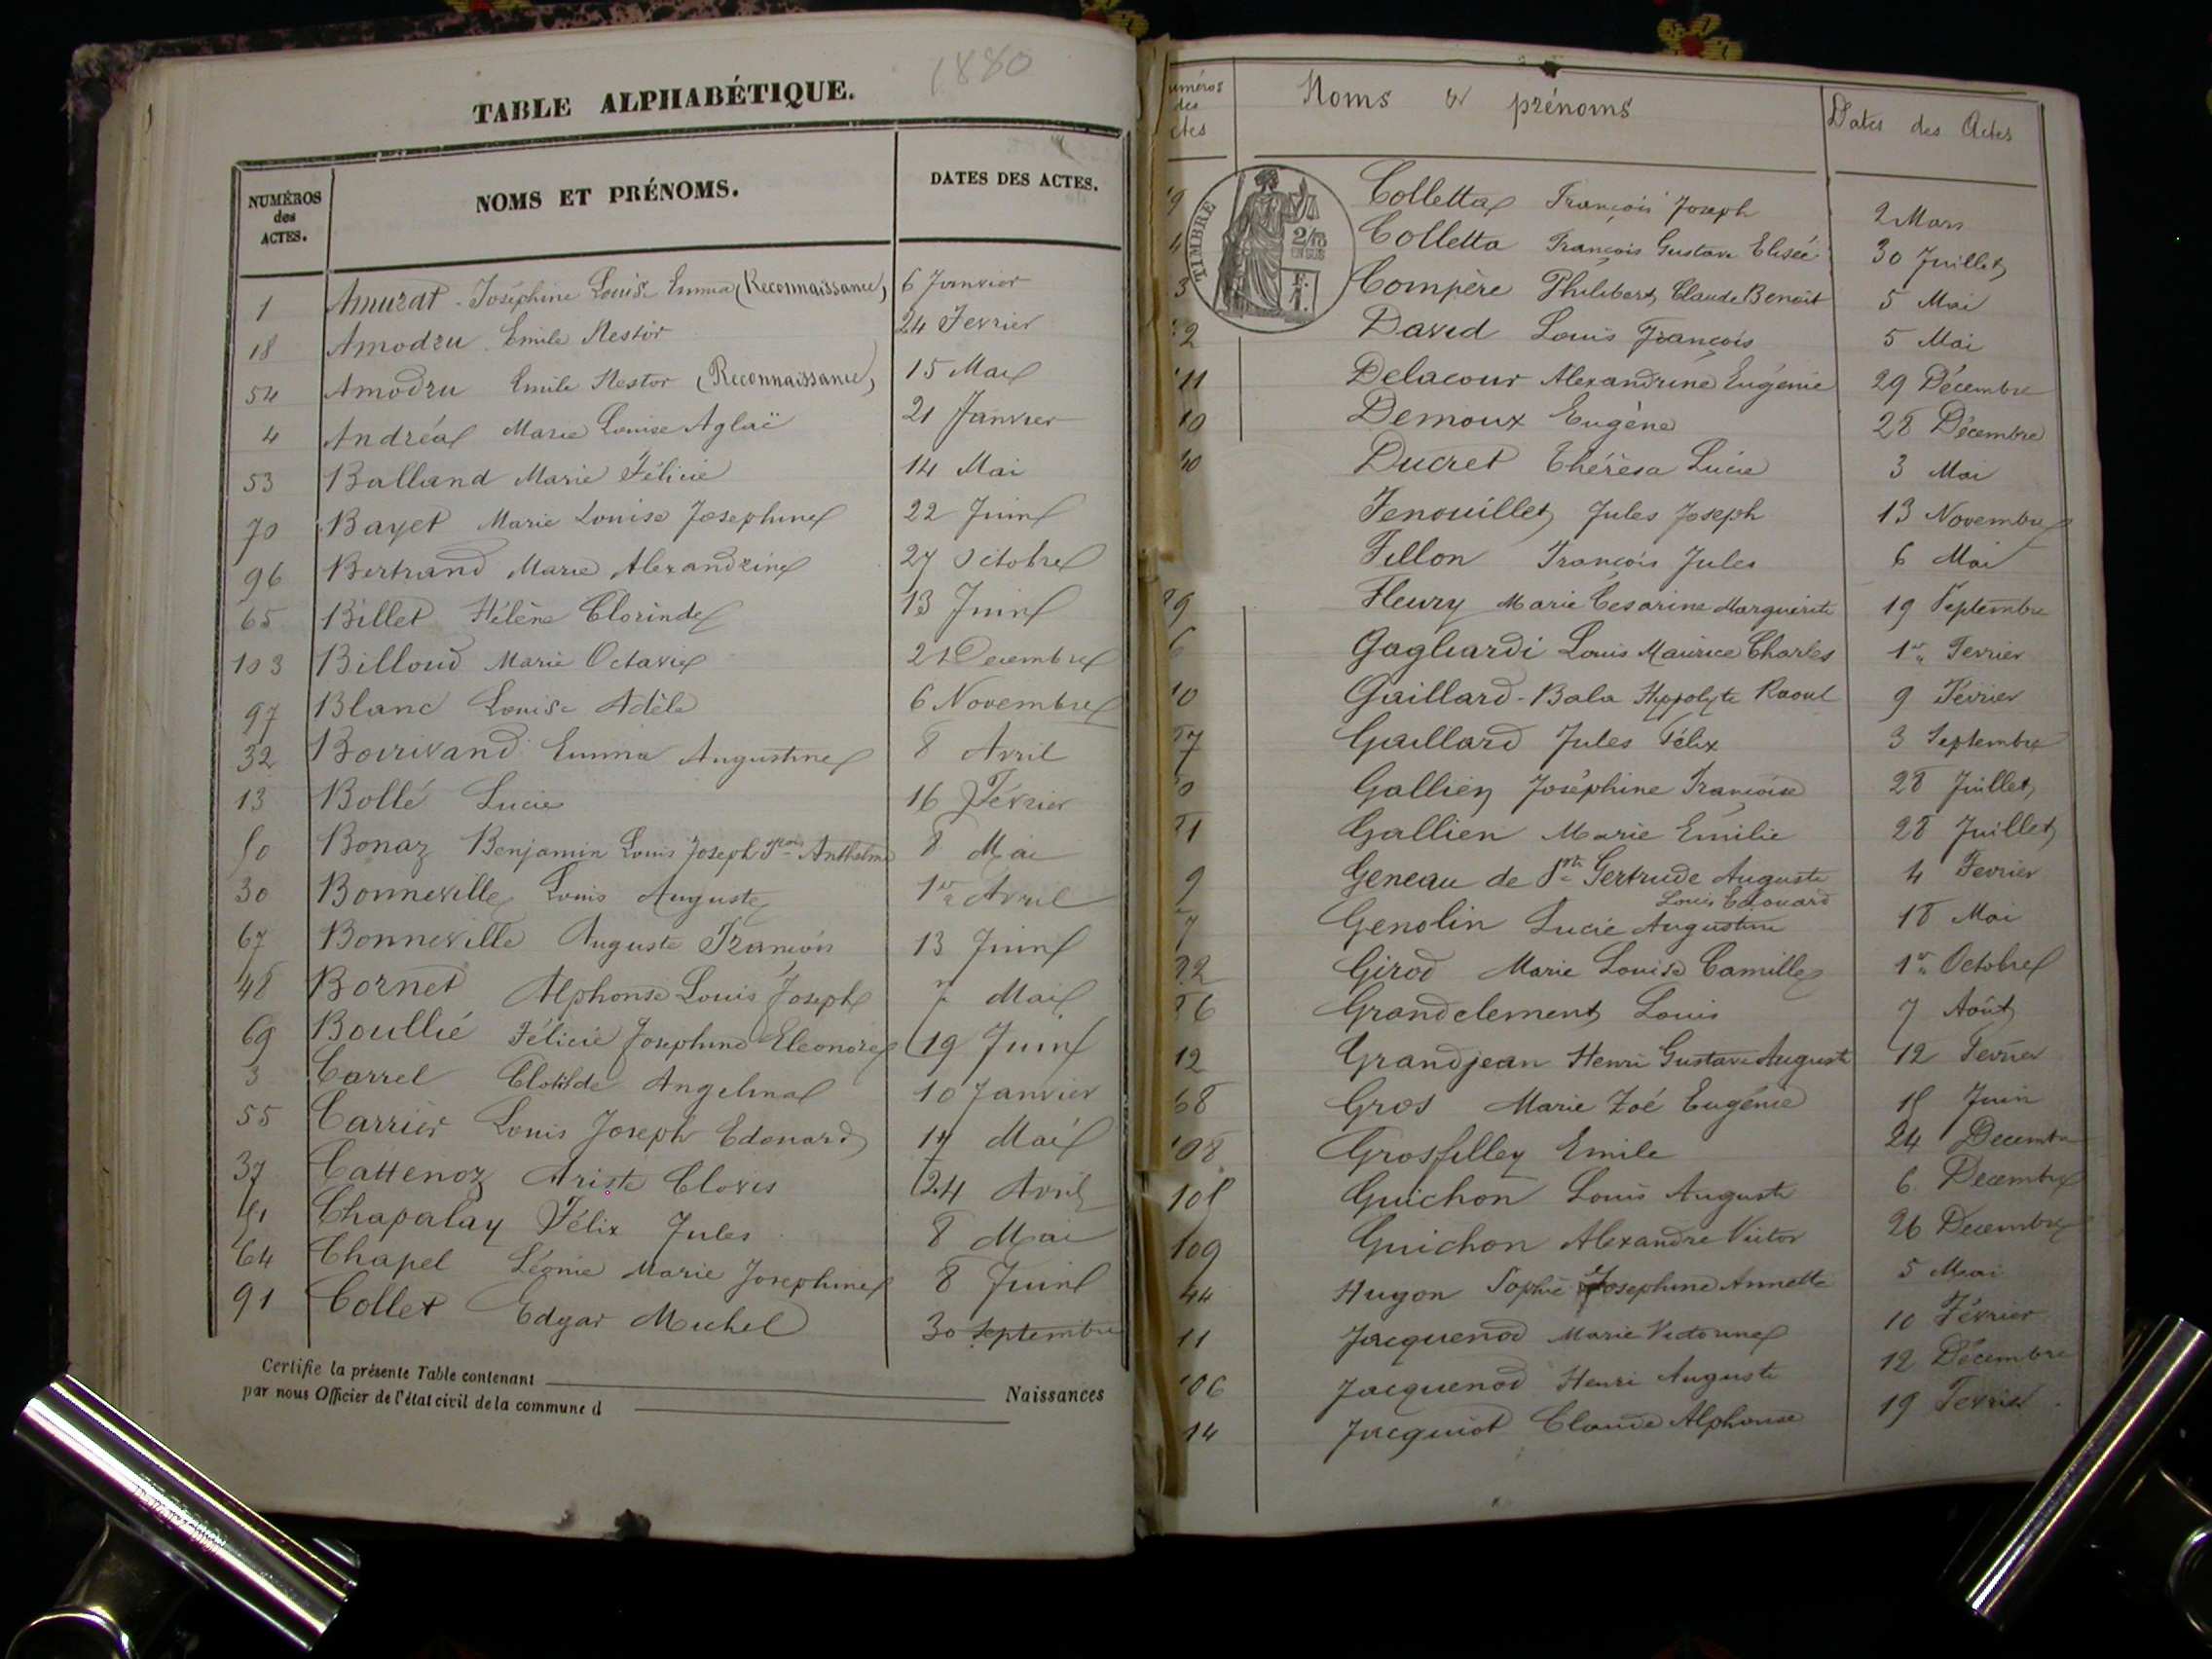 1880
TABLE ALPHABÉTIQUE.
NUMÉROS des ACTES. NOMS ET PRÉNOMS. DATES DES ACTES.
1 Amuzat Joséphine Louise Emma (Reconnaissance) 6 Janvier
18 Amodru Emile Nestor 24 Fevrier
54 Amodru Emile Nestor (Reconnaissance) 15 Mai
4 Andréa Marie Louise Aglaë 21 Janvier
53 Balland Marie Félicie 14 Mai
70 Bayet Marie Louise Josephine 22 Juin
96 Bertrand Marie Alexandrine 27 Octobre
65 Billet Hélène Clorinde 13 Juin
103 Billoud Marie Octavie 21 Decembre
97 Blanc Louise Adèle 6 Novembre
32 Boirivand Emma Augustine 8 Avril
13 Bollé Lucie 16 Février
50 Bonaz Benjamin Louis Joseph Frois Anthelme 8 Mai
30 Bonneville Louis Auguste 1er Avril
67 Bonneville Auguste François 13 Juin
48 Bornet Alphonse Louis Joseph 7 Mai
69 Boullié Félicie Josephine Eleonore 19 Juin
3 Carrel Clotilde Angelina 10 Janvier
55 Carrier Louis Joseph Edouard 17 Mai
37 Cattenoz Ariste Clovis 24 Avril
51 Chapalay Félix Jules 8 Mai
64 Chapel Léonie Marie Josephine 8 Juin
91 Collet Edgar Michel 30 Septembre
Certifie la présente Table contenant Naissances
par nous Officier de l'état civil de la commune d
uméros des ctes Noms et prénoms Dates des Actes
TIMBRE 2/10 EN SUS
9 Colletta François Joseph 2 Mars
Colletta François Gustave Elisée 30 Juillet
3 Compère Philibert Claude Benoit 5 Mai
2 David Louis François 5 Mai
11 Delacour Alexandrine Eugénie 29 Décembre
10 Demoux Eugène 28 Décembre
40 Ducret Thérèsa Lucie 3 Mai
Fenouillet Jules Joseph 13 Novembre
Fillon François Jules 6 Mai
9 Fleury Marie Cesarine Marguerite 19 Septembre
6 Gagliardi Louis Maurice Charles 1er Fevrier
10 Gaillard-Bala Hyppolyte Raoul 9 Février
7 Gaillard Jules Félix 3 Septembre
0 Gallien Joséphine Françoise 28 Juillet
1 Gallien Marie Emilie 28 Juillet
9 Geneau de Ste Gertrude Auguste 4 Fevrier
Louis Edouard
7 Genolin Lucie Augustine 18 Mai
92 Girod Marie Louise Camille 1er Octobre
86 Grandclement Louis 7 Août
12 Grandjean Henri Gustave Auguste 12 Fevrier
68 Gros Marie Zoé Eugénie 15 Juin
108 Grosfilley Emile 24 Decembre
101 Guichon Louis Auguste 6 Decembre
109 Guichon Alexandre Victor 26 Decembre
44 Hugon Sophie Josephine Annette 5 Mai
11 Jacquenod Marie Victorine 10 Février
106 Jacquenod Henri Auguste 12 Décembre
14 Jacquiot Claude Alphonse 19 Fevrier